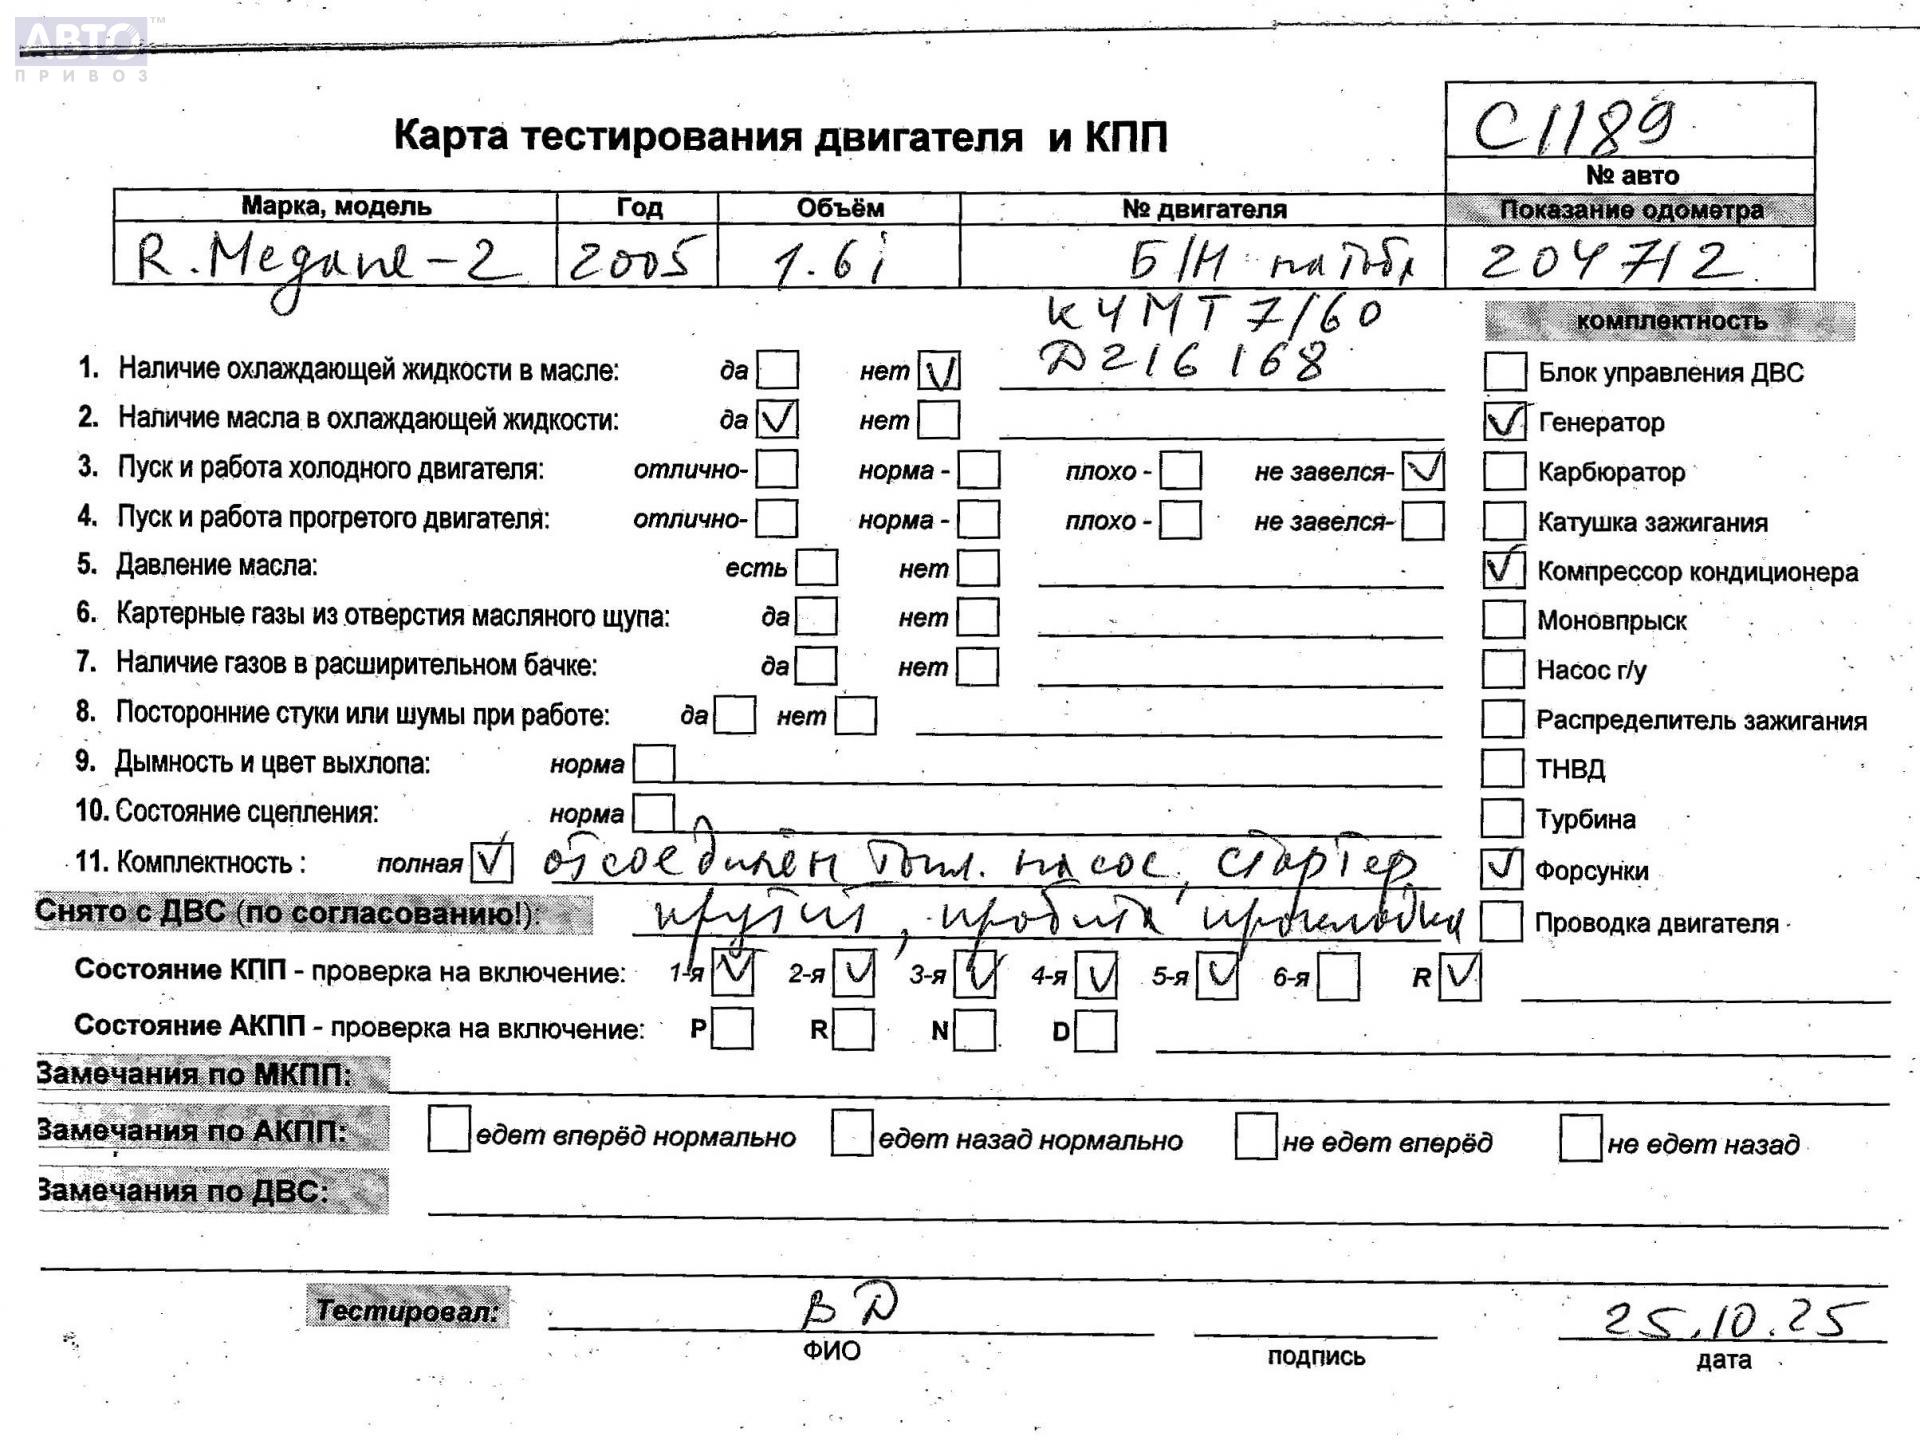 АВТО™
ПРИВОЗ
С1189
Карта тестирования двигателя и КПП
№ авто
Марка, модель Год Объём № двигателя Показание одометра
R. Megane-2 2005 1.6i Б/Н 204712
К4МТ7/60
комплектность
Д216168
1. Наличие охлаждающей жидкости в масле: да нет V Блок управления ДВС
2. Наличие масла в охлаждающей жидкости: да V нет V Генератор
3. Пуск и работа холодного двигателя: отлично- норма - плохо - не завелся- V Карбюратор
4. Пуск и работа прогретого двигателя: отлично- норма - плохо - не завелся- Катушка зажигания
5. Давление масла: есть нет V Компрессор кондиционера
6. Картерные газы из отверстия масляного щупа: да нет Моновпрыск
7. Наличие газов в расширительном бачке: да нет Насос г/у
8. Посторонние стуки или шумы при работе: да нет Распределитель зажигания
9. Дымность и цвет выхлопа: норма ТНВД
10. Состояние сцепления: норма Турбина
11. Комплектность : полная V отсоединен топл. насос, стартер V Форсунки
Снято с ДВС (по согласованию!): крутит, пробита прокладка Проводка двигателя
Состояние КПП - проверка на включение: 1-я V 2-я V 3-я V 4-я V 5-я V 6-я R V
Состояние АКПП - проверка на включение: P R N D
Замечания по МКПП:
Замечания по АКПП: едет вперёд нормально едет назад нормально не едет вперёд не едет назад
Замечания по ДВС:
Тестировал: ВД 25.10.25
ФИО подпись дата